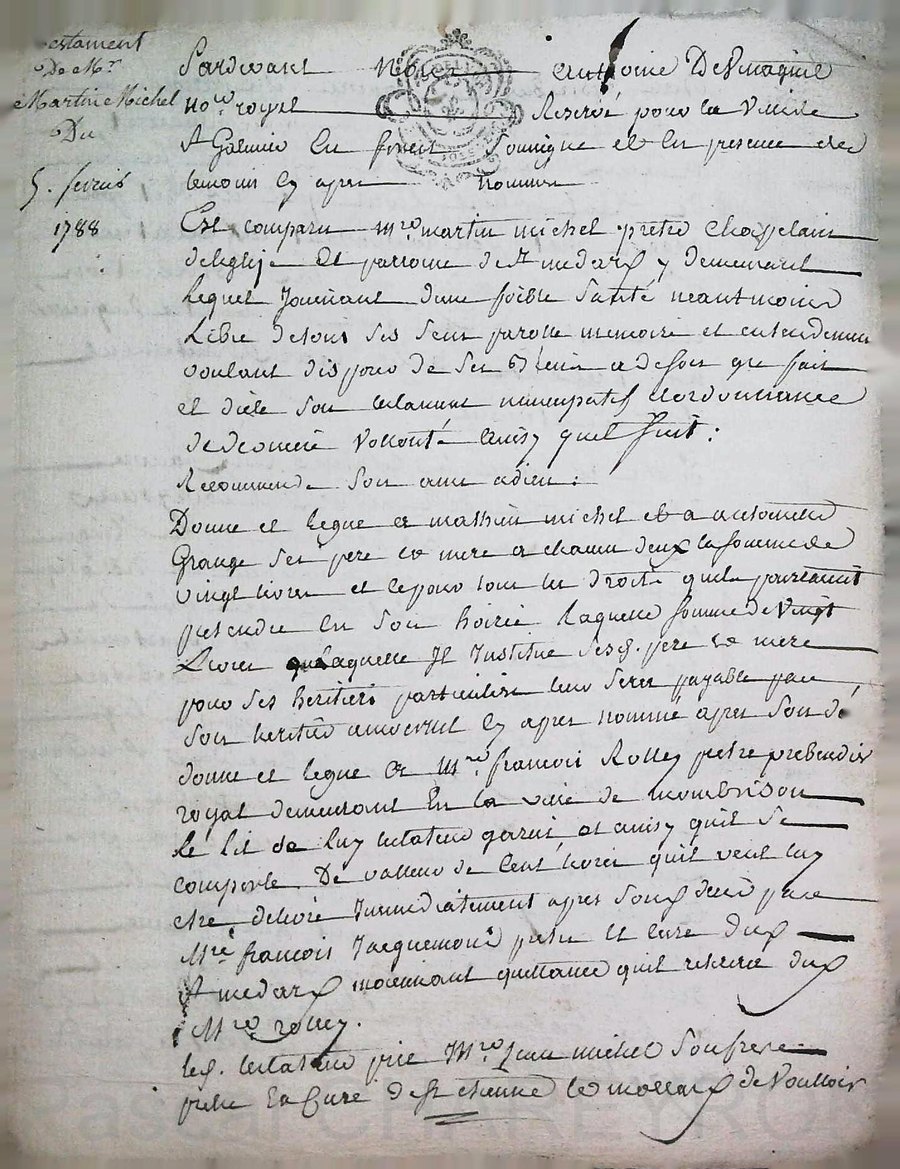 Testament
De Mr
Martin Michel
Du
5. fevrier
1788
Pardevant Nous Antoine Desmagnie
no.re royal Reservé pour la Ville de
St Galmier En forest Soussigné et En presence des
temoins Cy apres nommés
Est comparu Mre. martin michel pretre Chappelain
de leglise Et parroisse de St medard y demeurant
Lequel Jouissant dune foible Santé neantmoins
Libre de tous Ses Sens parolle memoire et entendement
voulant disposer de Ses Biens a de Son gre fait
et dicte Son testament nuncupatif et ordonnance
de derniere Vollonté Ainsy quil Suit :
Recommende Son ame adieu :
Donne et legue a mathieu michel et a antoinette
Grange Ses pere et mere a chacun deux la Somme de
vingt livres et ce pour tous les droits quils pourroient
pretendre en Son hoirie Laquelle Somme de Vingt
Livres laquelle Il Institue Sesd. pere et mere
pour Ses heritiers particuliers leur Sera payable par
Son heritier universel Cy apres nommé apres Son de
donne et legue a Mre. françois Rolley pretre prebendier
royal demeurant En la ville de mombrison
Le lit de luy testateur garni et ainsy quil Se
comporte De valleur de Cent livres quil veut luy
etre delivré Immediatement apres Sond deces par
Mre françois Jacquemond pretre et curé dud
St medard moiennant quittance quil retirera dud
Mre. rolley.
led. testateur prie Mre. Jean michel Son frere
pretre En Cure de St etienne le mollard de Voulloir